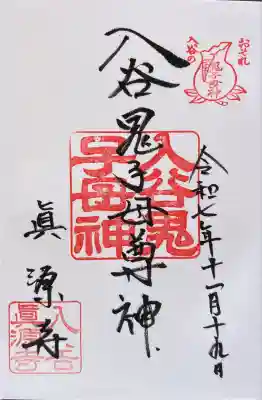 おそれ
入谷の
鬼子母神
令和七年十一月十九日
入谷鬼子母尊神
入谷鬼
子母神
眞源寺
入谷
眞源寺